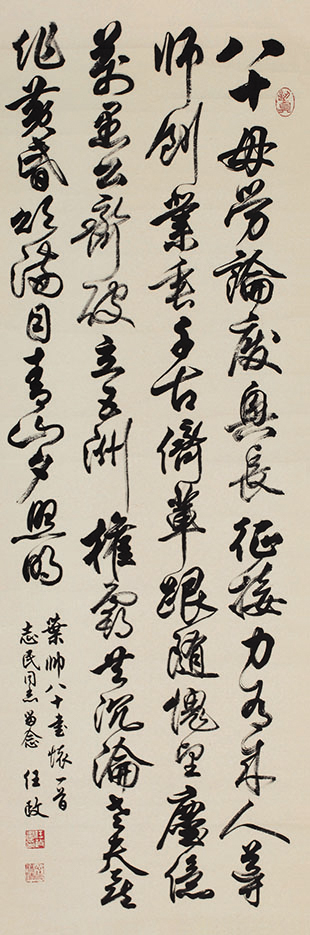 八十毋劳論廢興長征接力有来人導
师創業垂千古儕輩跟随愧望塵億
萬愚公齊破立五洲權霸共沉淪老夫喜
作黄昏颂满目青山夕照明
葉帅八十書怀一首
志民同志留念 任政